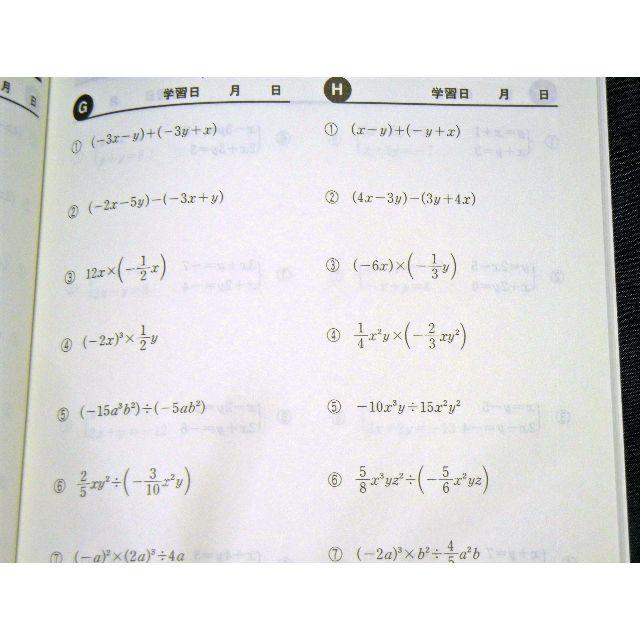 月 日
G 学習日 月 日
① (−3x−y)+(−3y+x)
② (−2x−5y)−(−3x+y)
③ 12x×(−1/2 x)
④ (−2x)³×1/2 y
⑤ (−15a³b²)÷(−5ab²)
⑥ 2/5 xy²÷(−3/10 x²y)
⑦ (−a)²×(2a)³÷4a
H 学習日 月 日
① (x−y)+(−y+x)
② (4x−3y)−(3y+4x)
③ (−6x)×(−1/3 y)
④ 1/4 x²y×(−2/3 xy²)
⑤ −10x³y÷15x²y²
⑥ 5/8 x³yz²÷(−5/6 x²yz)
⑦ (−2a)³×b²÷4/5 a²b